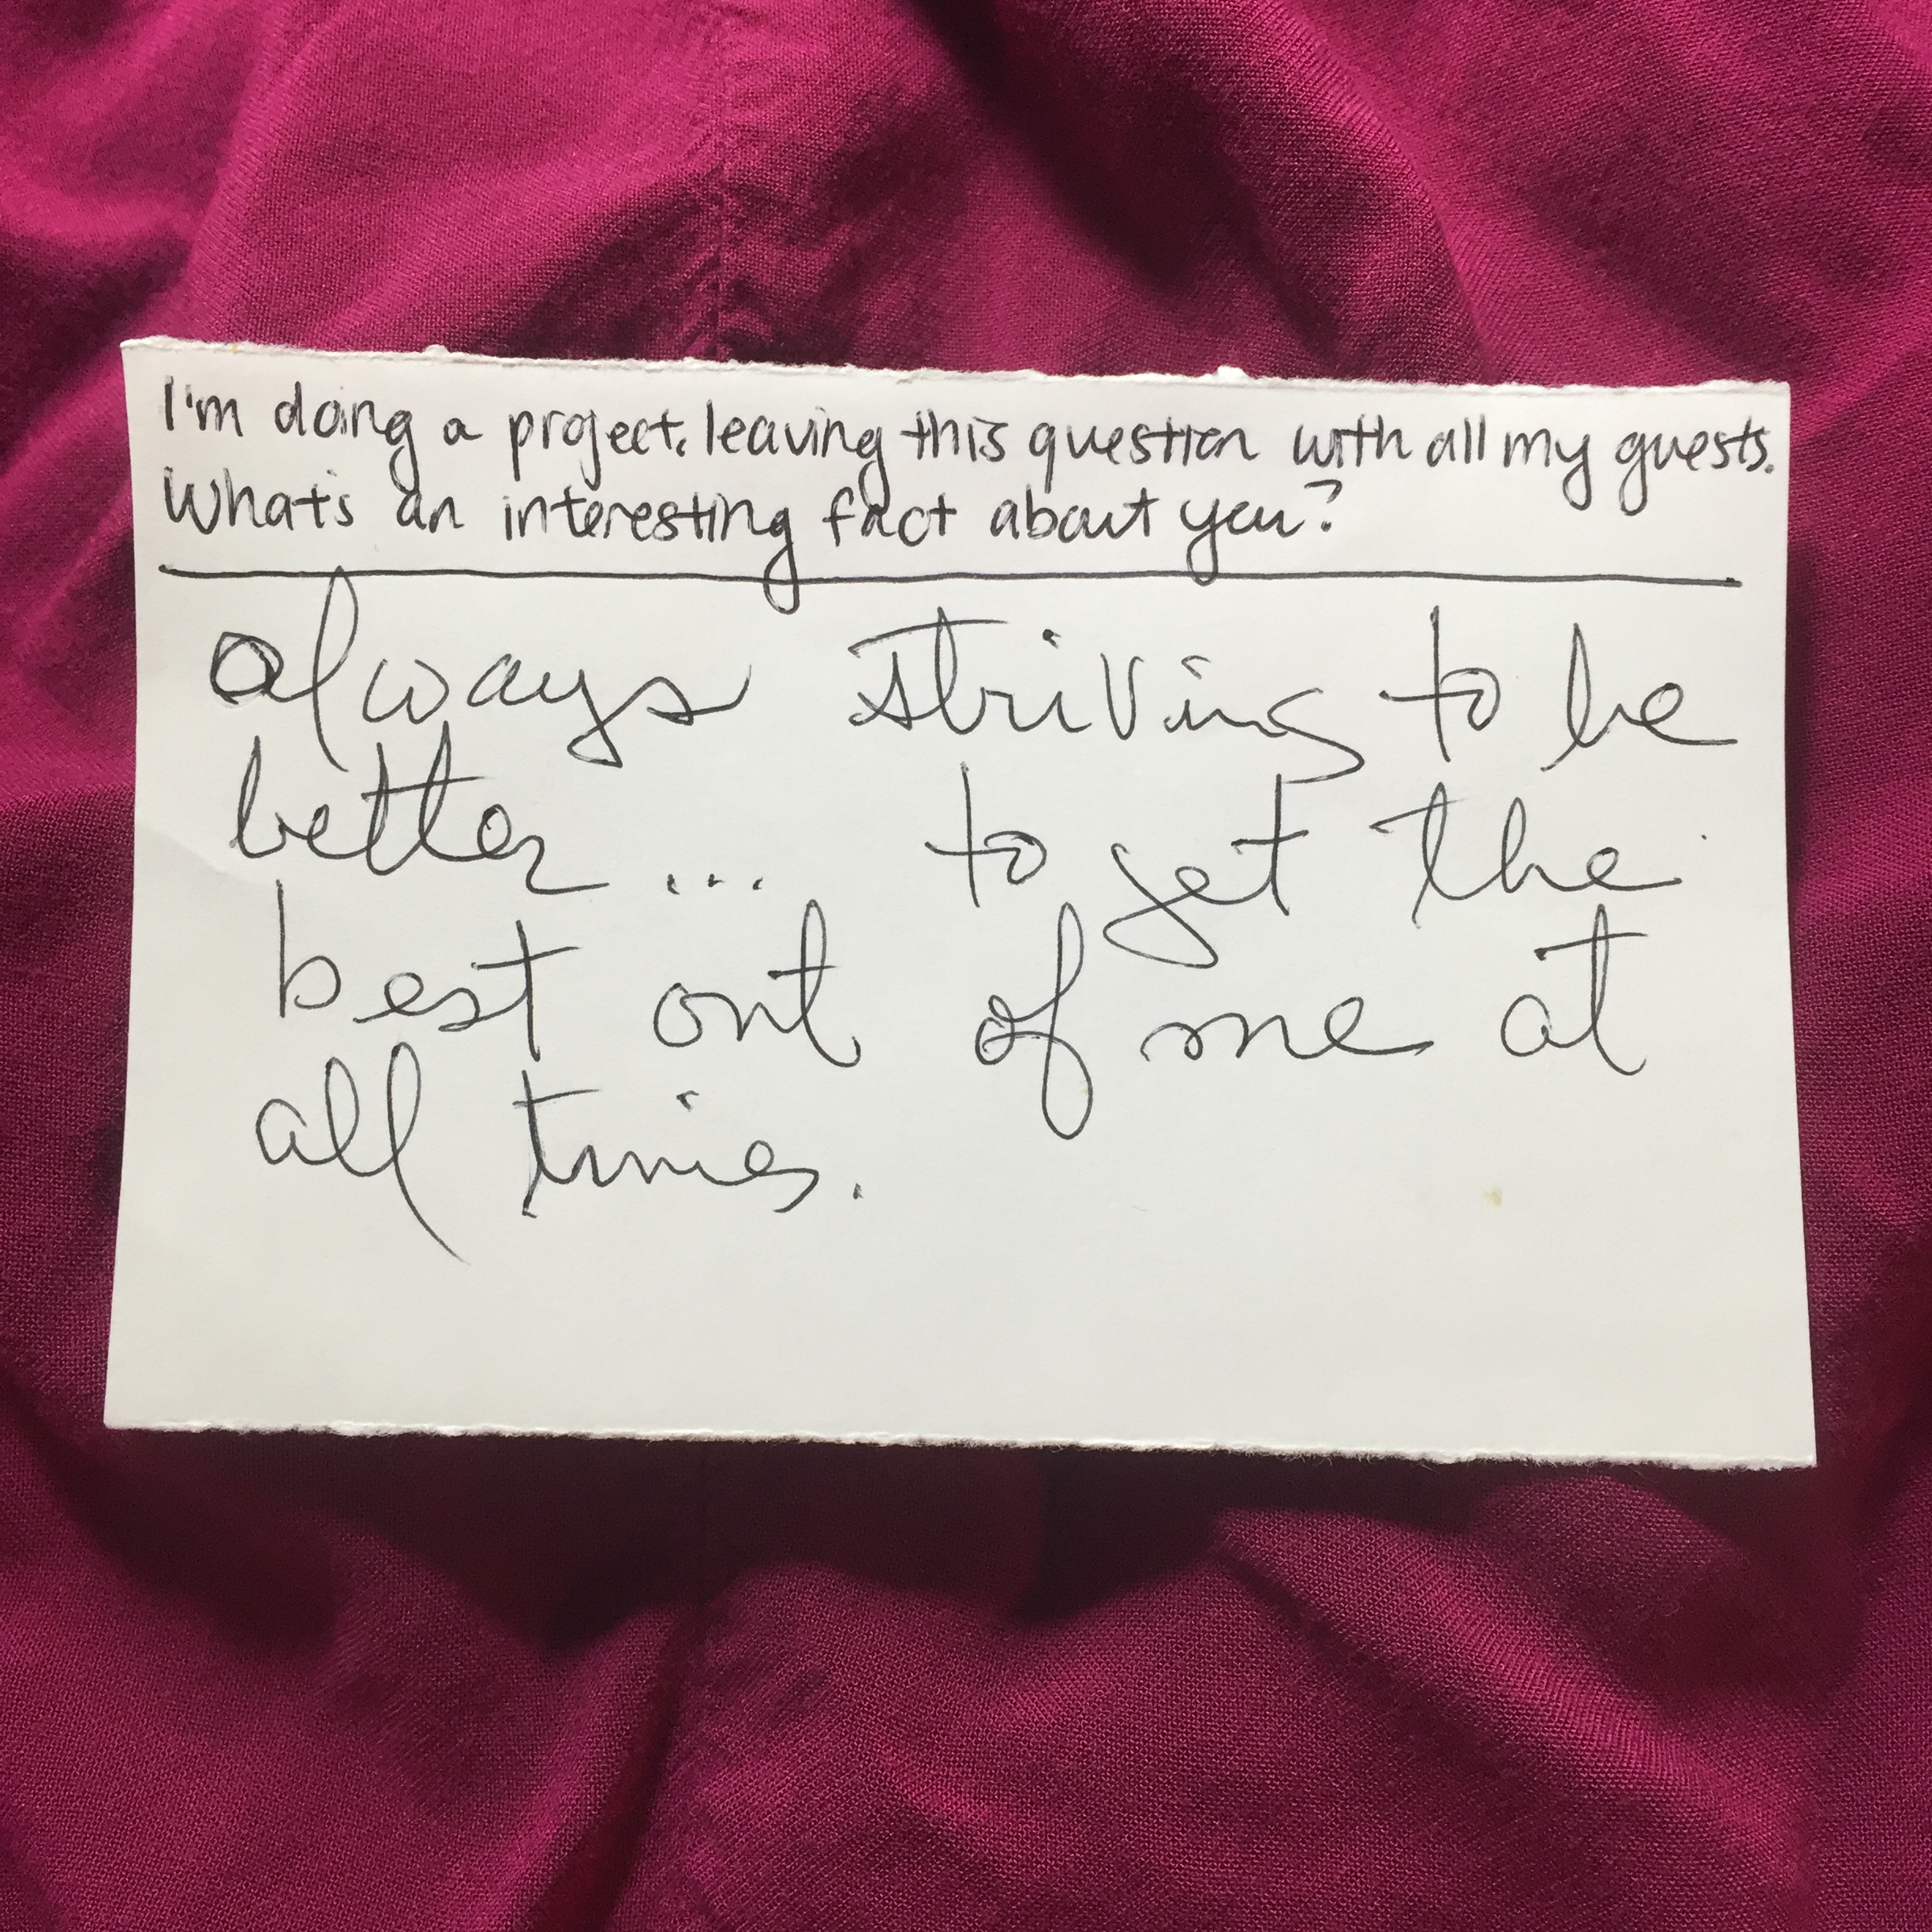 I'm doing a project. leaving this question with all my guests.
What's an interesting fact about you?
always striving to be
better ... to get the
best out of me at
all times.